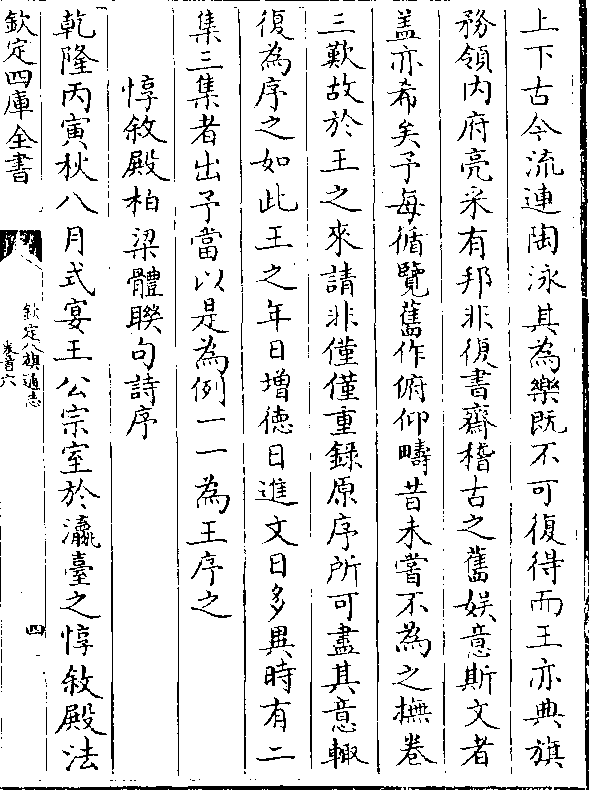 上下古今流連陶泳其為樂既不可復得而王亦典旗
務領内府亮采有邦非復書齋稽古之舊娱意斯文者
盖亦希矣予每循覽舊作俯仰疇昔未嘗不為之撫卷
三歎故於王之來請非僅僅重録原序所可盡其意輙
復為序之如此王之年日增徳日進文日多異時有二
集三集者出予當以是為例一一為王序之
惇敘殿柏梁體聯句詩序
乾隆丙寅秋八月式宴王公宗室於瀛臺之惇敘殿法
欽定四庫全書
欽定八旗通志
卷首六
四